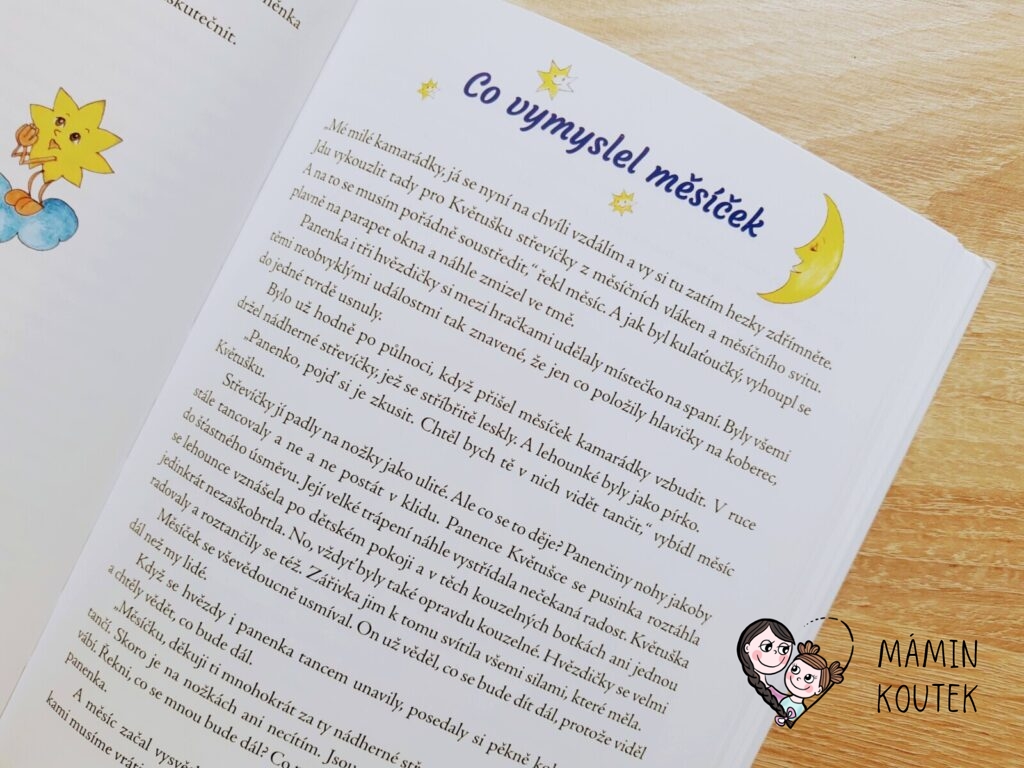 něnka
skutečnit.
Co vymyslel měsíček
„Mé milé kamarádky, já se nyní na chvíli vzdálím a vy si tu zatím hezky zdřímněte.
Jdu vykouzlit tady pro Květušku střevíčky z měsíčních vláken a měsíčního svitu.
A na to se musím pořádně soustředit,“ řekl měsíc. A jak byl kulaťoučký, vyhoupl se
plavně na parapet okna a náhle zmizel ve tmě.
Panenka i tři hvězdičky si mezi hračkami udělaly místečko na spaní. Byly všemi
těmi neobvyklými událostmi tak znavené, že jen co položily hlavičky na koberec,
do jedné tvrdě usnuly.
Bylo už hodně po půlnoci, když přišel měsíček kamarádky vzbudit. V ruce
držel nádherné střevíčky, jež se stříbřitě leskly. A lehounké byly jako pírko.
„Panenko, pojď si je zkusit. Chtěl bych tě v nich vidět tančit,“ vybídl měsíc
Květušku.
Střevíčky jí padly na nožky jako ulité. Ale co se to děje? Panenčiny nohy jakoby
stále tancovaly a ne a ne postát v klidu. Panence Květušce se pusinka roztáhla
do šťastného úsměvu. Její velké trápení náhle vystřídala nečekaná radost. Květuška
se lehounce vznášela po dětském pokoji a v těch kouzelných botkách ani jednou
jedinkrát nezaškobrtla. No, vždyť byly také opravdu kouzelné. Hvězdičky se velmi
radovaly a roztančily se též. Zářivka jim k tomu svítila všemi silami, které měla.
Měsíček se vševědoucně usmíval. On už věděl, co se bude dít dál, protože viděl
dál než my lidé.
Když se hvězdy i panenka tancem unavily, posedaly si pěkně
a chtěly vědět, co bude dál.
„Měsíčku, děkuji ti mnohokrát za ty nádherné
tančí. Skoro je na nožkách ani necítím. Jsou
vábí. Řekni, co se mnou bude dál?
panenka.
A měsíc začal
kami musíme
MÁMIN
KOUTEK